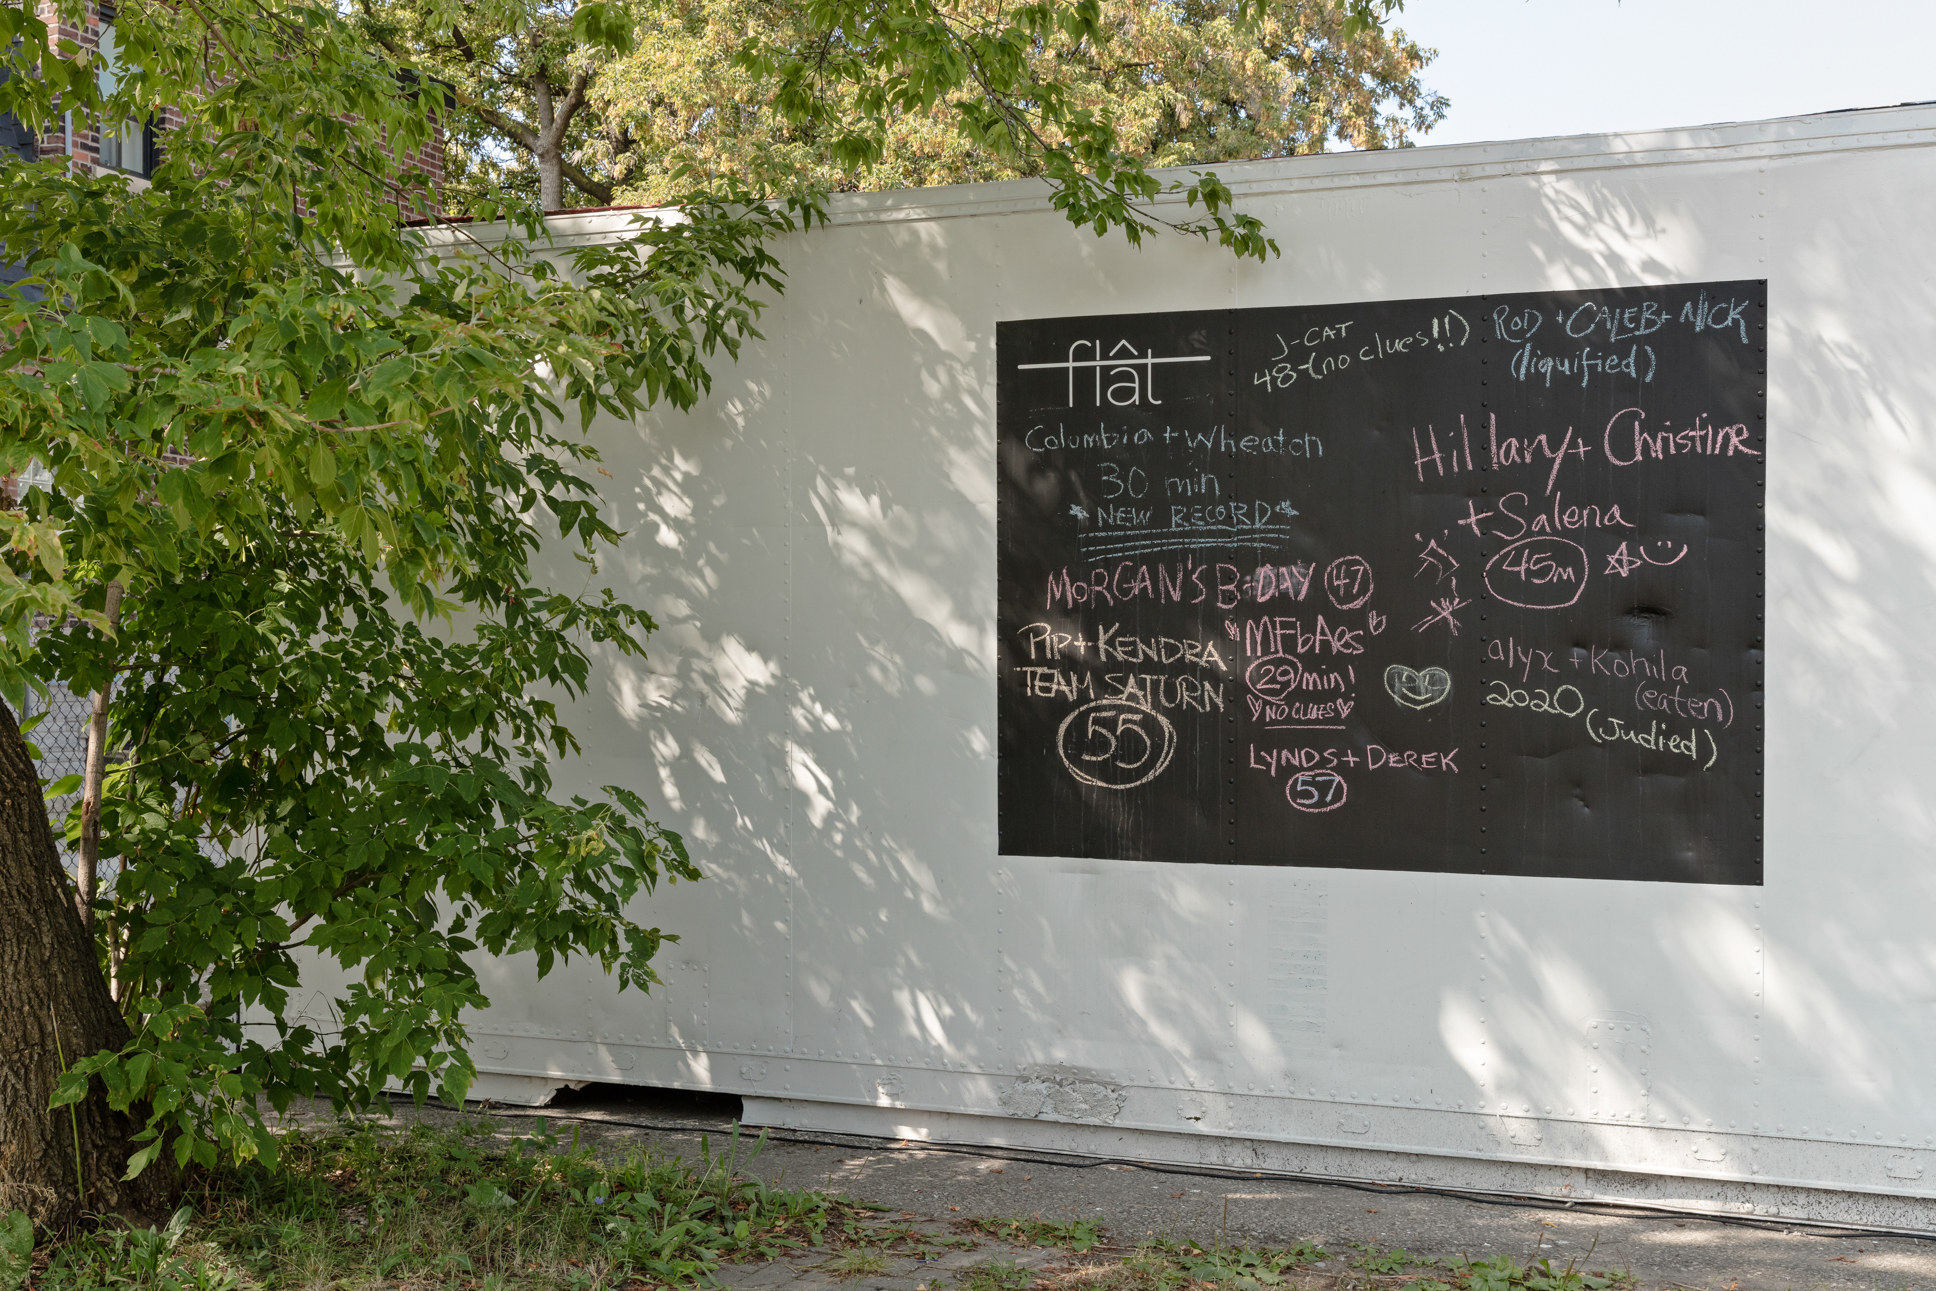 flât
J-CAT
48-(no clues!!)
ROD + CALEB + NICK
(liquified)
Columbia + Wheaton
30 min
NEW RECORD
Hillary + Christine
+ Salena
45m
MORGAN'S B-DAY 47
PIP + KENDRA
TEAM SATURN
55
MFbAes
29 min!
NO CLUES
LYNDS + DEREK
57
alyx + Kohila
(eaten)
2020
(Judied)